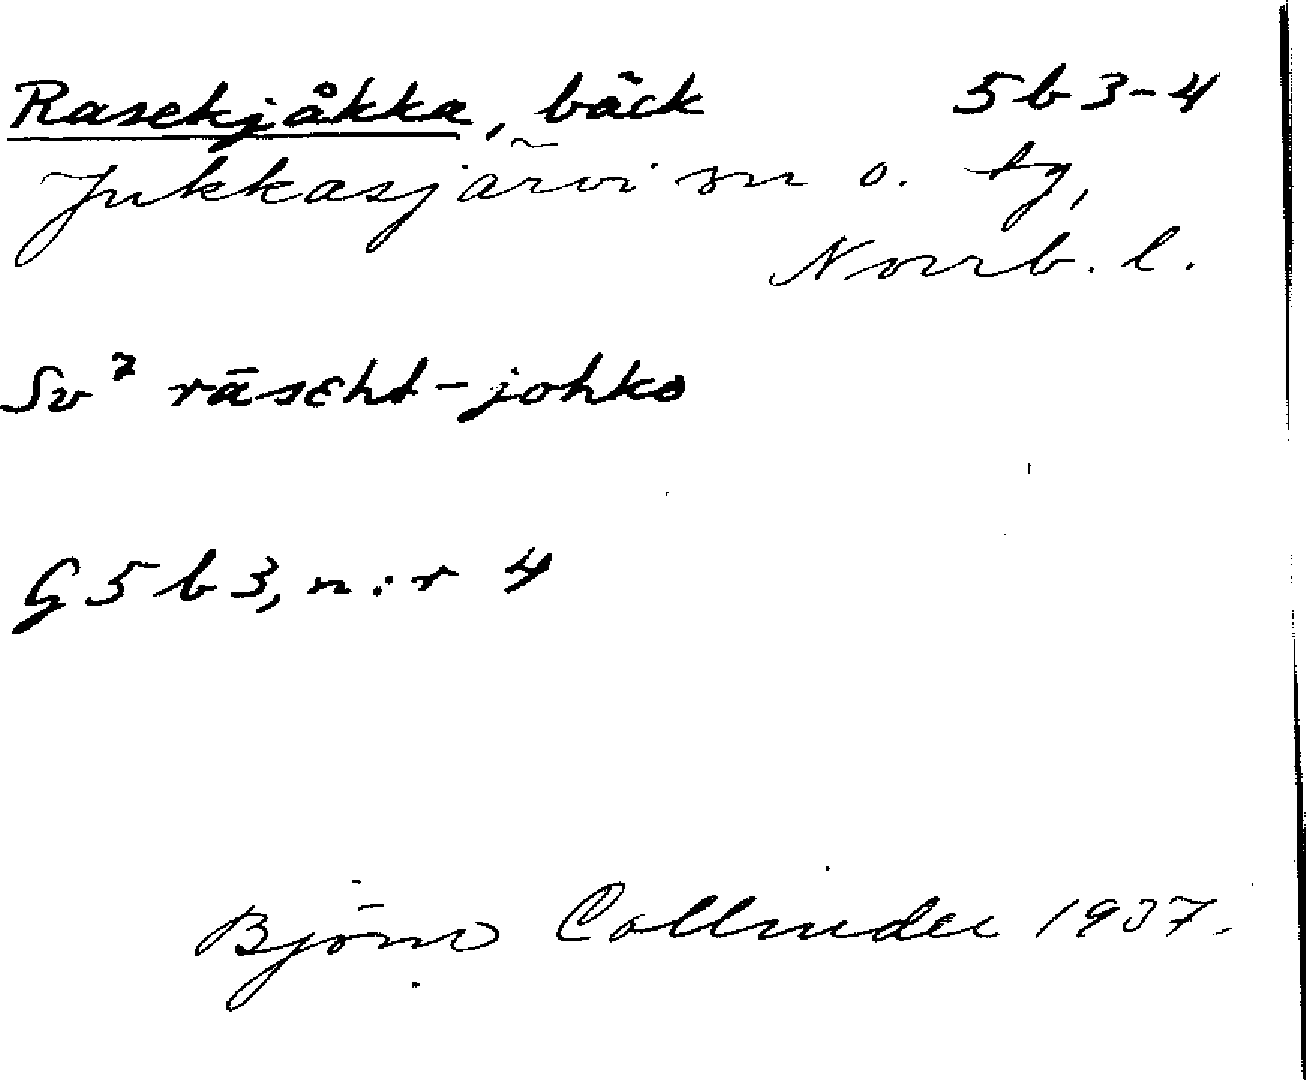 Rasekjåkka, bäck 5b3-4
Jukkasjärvi sn o. tg,
Norrb. l.
Sv² räsɛht-johko
G5b3, n:r 4
Björn Collinder 1937.